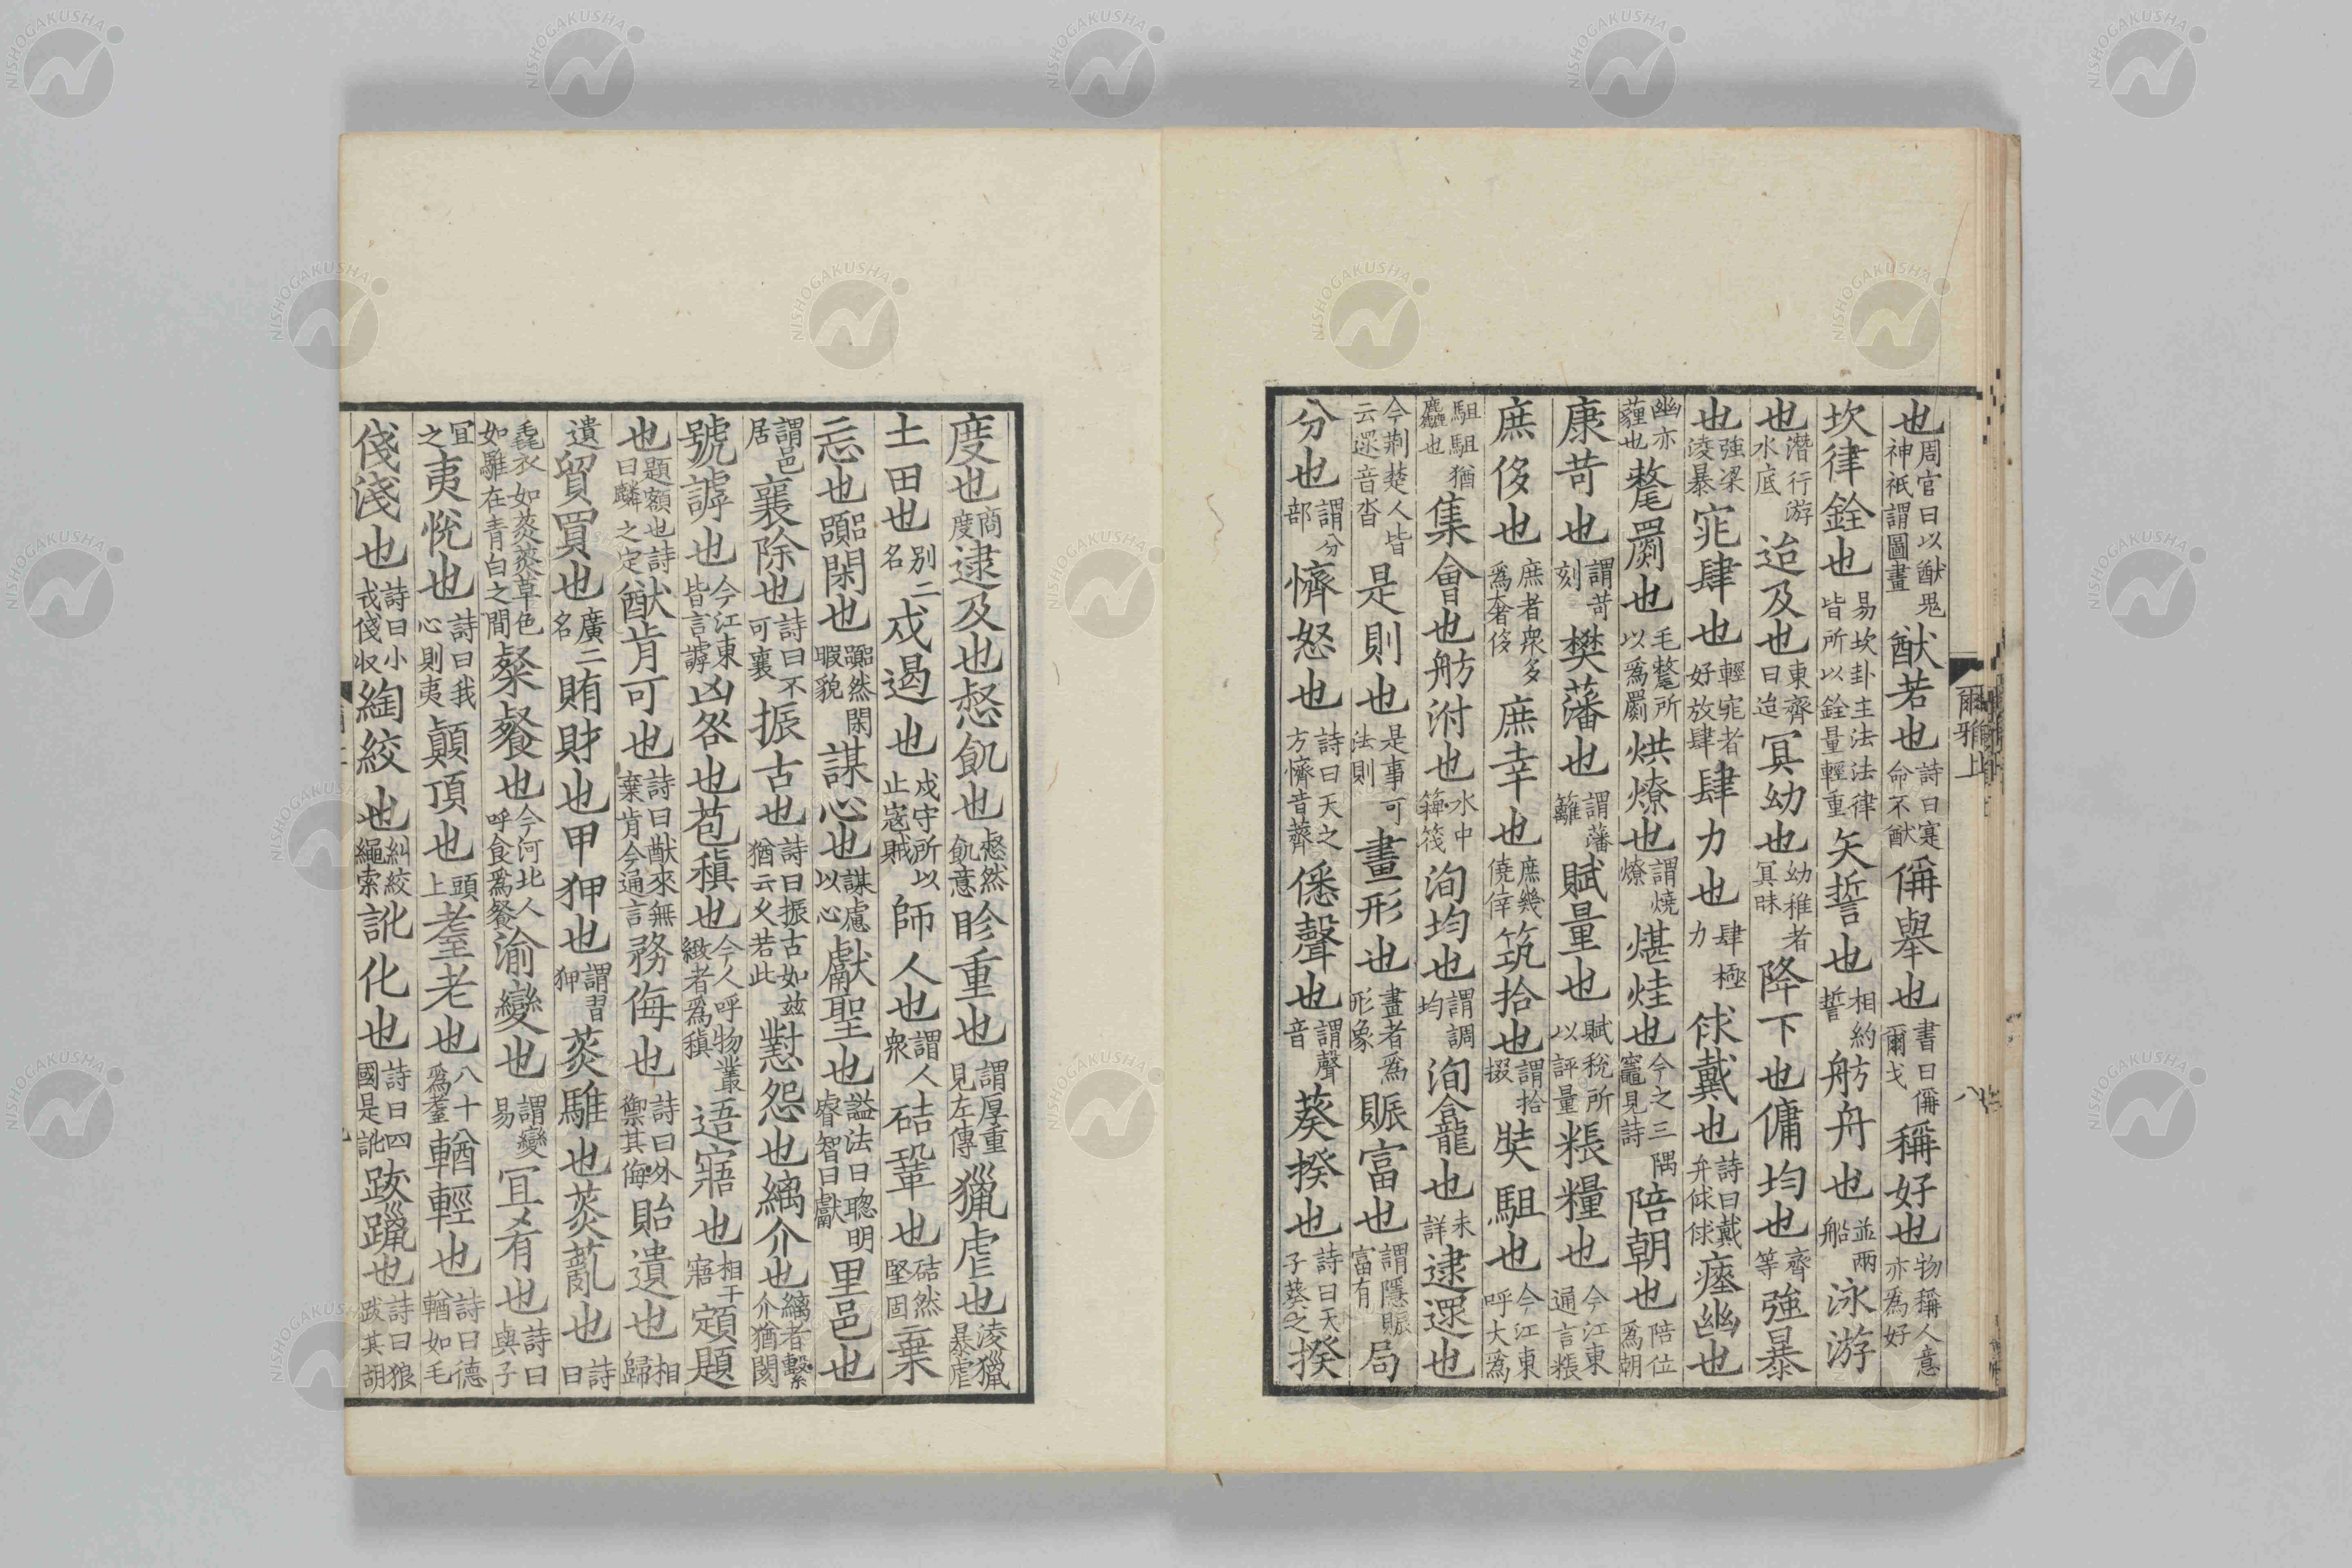 也周官曰以猷鬼神祇謂圖畫猷若也詩曰寔命不猷偁舉也書曰偁爾戈稱好也物稱人意亦爲好
坎律銓也易坎卦主法法律皆所以銓量輕重矢誓也相約誓舫舟也並兩船泳游
也潛行游水底迨及也東齊曰迨冥幼也幼稚者冥昧降下也傭均也齊等強暴
也強梁淩暴窕肆也輕窕者好放肆肆力也肆極力俅戴也詩曰戴弁俅俅瘞幽也
幽亦薶也氂罽也毛氂所以爲罽烘燎也謂燒燎煁烓也今之三隅竈見詩陪朝也陪位爲朝
康苛也謂苛刻樊藩也謂藩籬賦量也賦稅所以評量粻糧也今江東通言粻
庶侈也庶者衆多爲奢侈庶幸也庶幾僥倖筑拾也謂拾掇奘駔也今江東呼大爲
駔駔猶麤也集會也舫泭也水中𥱼筏洵均也謂調均洵龕也未詳逮遝也
今荆楚人皆云遝音沓是則也是事可法則畫形也畫者爲形象賑富也謂隱賑富有局
分也謂分部懠怒也詩曰天之方懠音薺僁聲也謂聲音葵揆也詩曰天子葵之揆
爾雅上
八
度也商度逮及也惄飢也惄然飢意眕重也謂厚重見左傳獵虐也淩獵暴虐
土田也別二名戍遏也戍守所以止寇賊師人也謂人衆硈鞏也硈然堅固棄
忘也嚻閑也嚻然閑暇貌謀心也謀慮以心獻聖也謚法曰聦明睿智曰獻里邑也
謂邑居襄除也詩曰不可襄振古也詩曰振古如兹猶云久若此懟怨也縭介也縭者繫介猶閡
號謼也今江東皆言謼凶咎也苞稹也今人呼物叢緻者爲稹逜寤也相干寤顁題
也題額也詩曰麟之定猷肯可也詩曰猷來無棄肯今通言務侮也詩曰外禦其侮貽遺也相歸
遺貿買也廣二名賄財也甲狎也謂習狎菼騅也菼薍也詩曰
毳衣如菼菼草色如騅在青白之間粲餐也今河北人呼食爲餐渝變也謂變易宜肴也詩曰與子
宜之夷悅也詩曰我心則夷顛頂也頭上耋老也八十爲耋輶輕也詩曰德輶如毛
俴淺也詩曰小戎俴收綯絞也糾絞繩索訛化也詩曰四國是訛跋躐也詩曰狼跋其胡